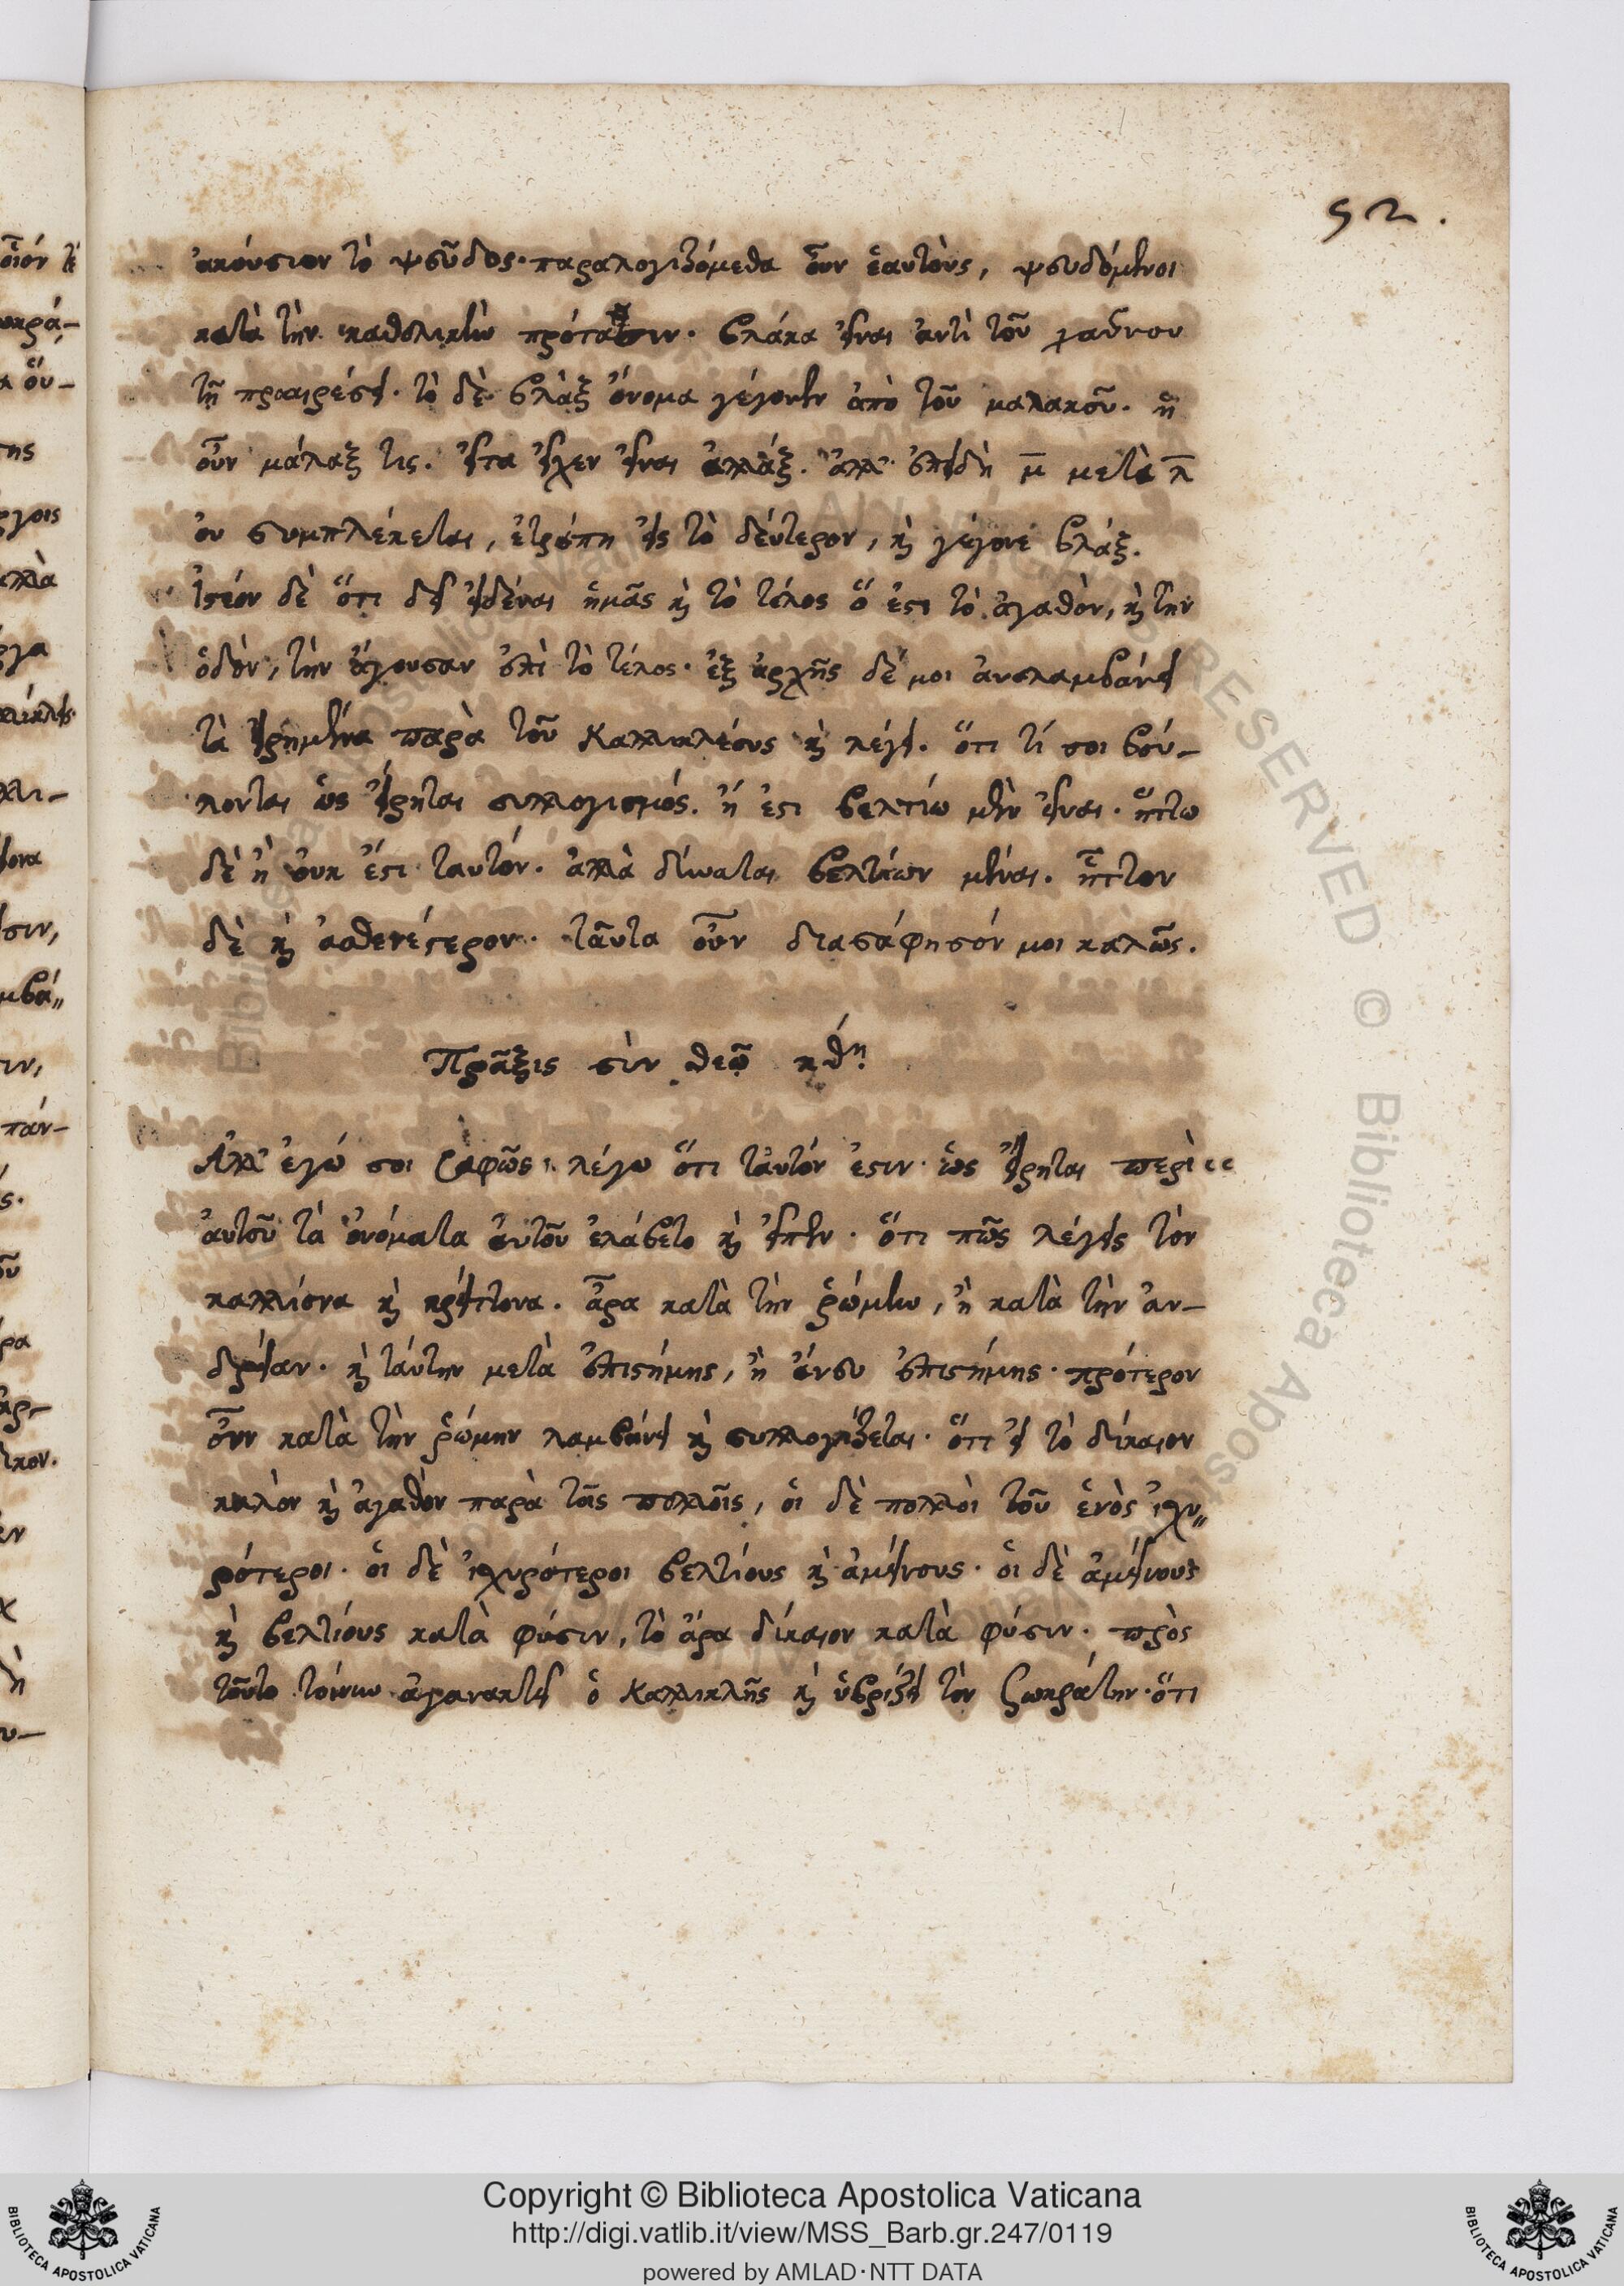 52.
ἀκούσιον τὸ ψεῦδος· παραλογιζόμεθα οὖν ἑαυτοὺς, ψευδόμενοι
κατὰ τὴν καθολικὴν πρότασιν· βλάκα εἶναι ἀντὶ τοῦ χαῦνον
τῇ προαιρέσει· τὸ δὲ βλὰξ ὄνομα γέγονεν ἀπὸ τοῦ μαλακοῦ. ἢ
οὖν μάλαξ τις. εἶτα εἶχεν εἶναι ἀλλάξ. ἀλλ' ἐπειδὴ μ̅ μετὰ λ̅
οὐ συμπλέκεται, ἐτράπη εἰς τὸ δεύτερον, καὶ γέγονε βλάξ.
Ἰστέον δὲ ὅτι δεῖ εἰδέναι ἡμᾶς καὶ τὸ τέλος ὅ ἐστι τὸ ἀγαθὸν, καὶ τὴν
ὁδὸν, τὴν ἄγουσαν ἐπὶ τὸ τέλος· ἐξ ἀρχῆς δέ μοι ἀναλαμβάνει
τὰ εἰρημένα παρὰ τοῦ Καλλικλέους καὶ λέγει. ὅτι τί σοι βού–
λονται ὡς εἴρηται συλλογισμός. ἤ ἐστι βελτίω μὲν εἶναι. ἥττω
δὲ ἢ οὐκ ἔστι ταυτόν. ἀλλὰ δύναται βελτίων μὲν εἶναι. ἧττον
δὲ καὶ ἀσθενέστερον. ταῦτα οὖν διασάφησόν μοι καλῶς.
Πρᾶξις σὺν θεῷ κθ´ⁿ
Ἀλλ' ἐγώ σοι σαφῶς λέγω ὅτι ταὐτόν ἐστιν· ὡς εἴρηται περὶ
αὐτοῦ τὰ ὀνόματα αὐτοῦ ἐλάβετο καὶ εἶπεν· ὅτι πῶς λέγεις τὸν
καλλίονα καὶ κρείττονα. ἆρα κατὰ τὴν ῥώμην, ἢ κατὰ τὴν ἀν–
δρείαν. καὶ ταύτην μετὰ ἐπιστήμης, ἢ ἄνευ ἐπιστήμης· πρότερον
οὖν κατὰ τὴν ῥώμην λαμβάνει καὶ συλλογίζεται. ὅτι εἰ τὸ δίκαιον
καλὸν καὶ ἀγαθὸν παρὰ τοῖς πολλοῖς, οἱ δὲ πολλοὶ τοῦ ἑνὸς ἰσχυ〃
ρότεροι. οἱ δὲ ἰσχυρότεροι βελτίους καὶ ἀμείνους. οἱ δὲ ἀμείνους
καὶ βελτίους κατὰ φύσιν, τὸ ἄρα δίκαιον κατὰ φύσιν. πρὸς
τοῦτο τοίνυν ἀγανακτεῖ ὁ Καλλικλῆς καὶ ὑβρίζει τὸν Σωκράτην· ὅτι
Copyright © Biblioteca Apostolica Vaticana
http://digi.vatlib.it/view/MSS_Barb.gr.247/0119
powered by AMLAD·NTT DATA
BIBLIOTECA APOSTOLICA VATICANA
BIBLIOTECA APOSTOLICA VATICANA